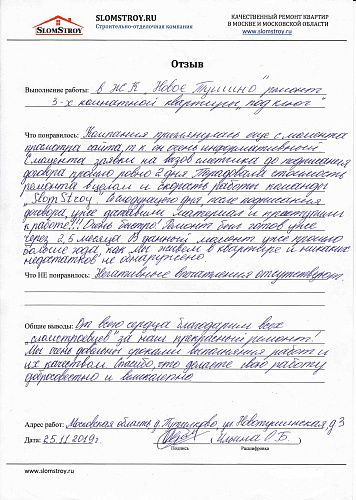 SLOMSTROY
SLOMSTROY.RU
Строительно-отделочная компания
КАЧЕСТВЕННЫЙ РЕМОНТ КВАРТИР
В МОСКВЕ И МОСКОВСКОЙ ОБЛАСТИ
www.slomstroy.ru
Отзыв
Выполнение работы: в ЖК "Новое Тушино" ремонт
3-х комнатной квартиры "под ключ"
Что понравилось: Компания приглянулась еще с момента
просмотра сайта, т.к. он очень информативный.
С момента заявки на вызов сметчика до подписания
договора прошло ровно 2 дня. Порадовала стоимость
ремонта в целом и скорость работы команды
"SlomStroy". На следующий день, после подписания
договора, уже доставили материал и приступили
к работе!!! Очень быстро! Ремонт был готов уже
через 2,5 месяца. В данный момент уже прошло
больше года, как мы живем в квартире и никаких
недостатков не обнаружено.
Что НЕ понравилось: Негативные впечатления отсутствуют.
Общие выводы: От всего сердца благодарим всех
"сломстроевцев" за наш прекрасный ремонт!
Мы очень довольны сроками выполнения работ и
их качеством. Спасибо, что делаете свою работу
добросовестно и
Адрес работ: Московская область, д. Путилково, ул. Новотушинская, д3
Дата: 25.11.2019г. Ильина О.Б.
Подпись Расшифровка
www.slomstroy.ru